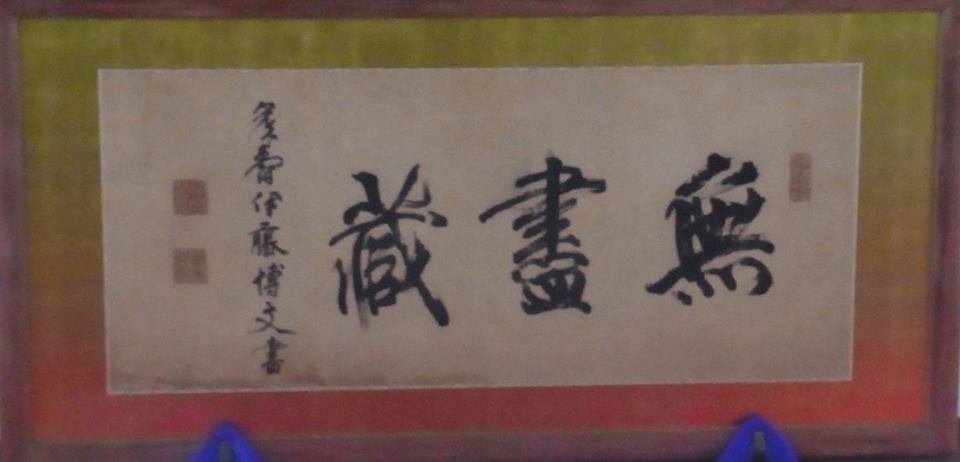 無盡藏
伊藤博文書